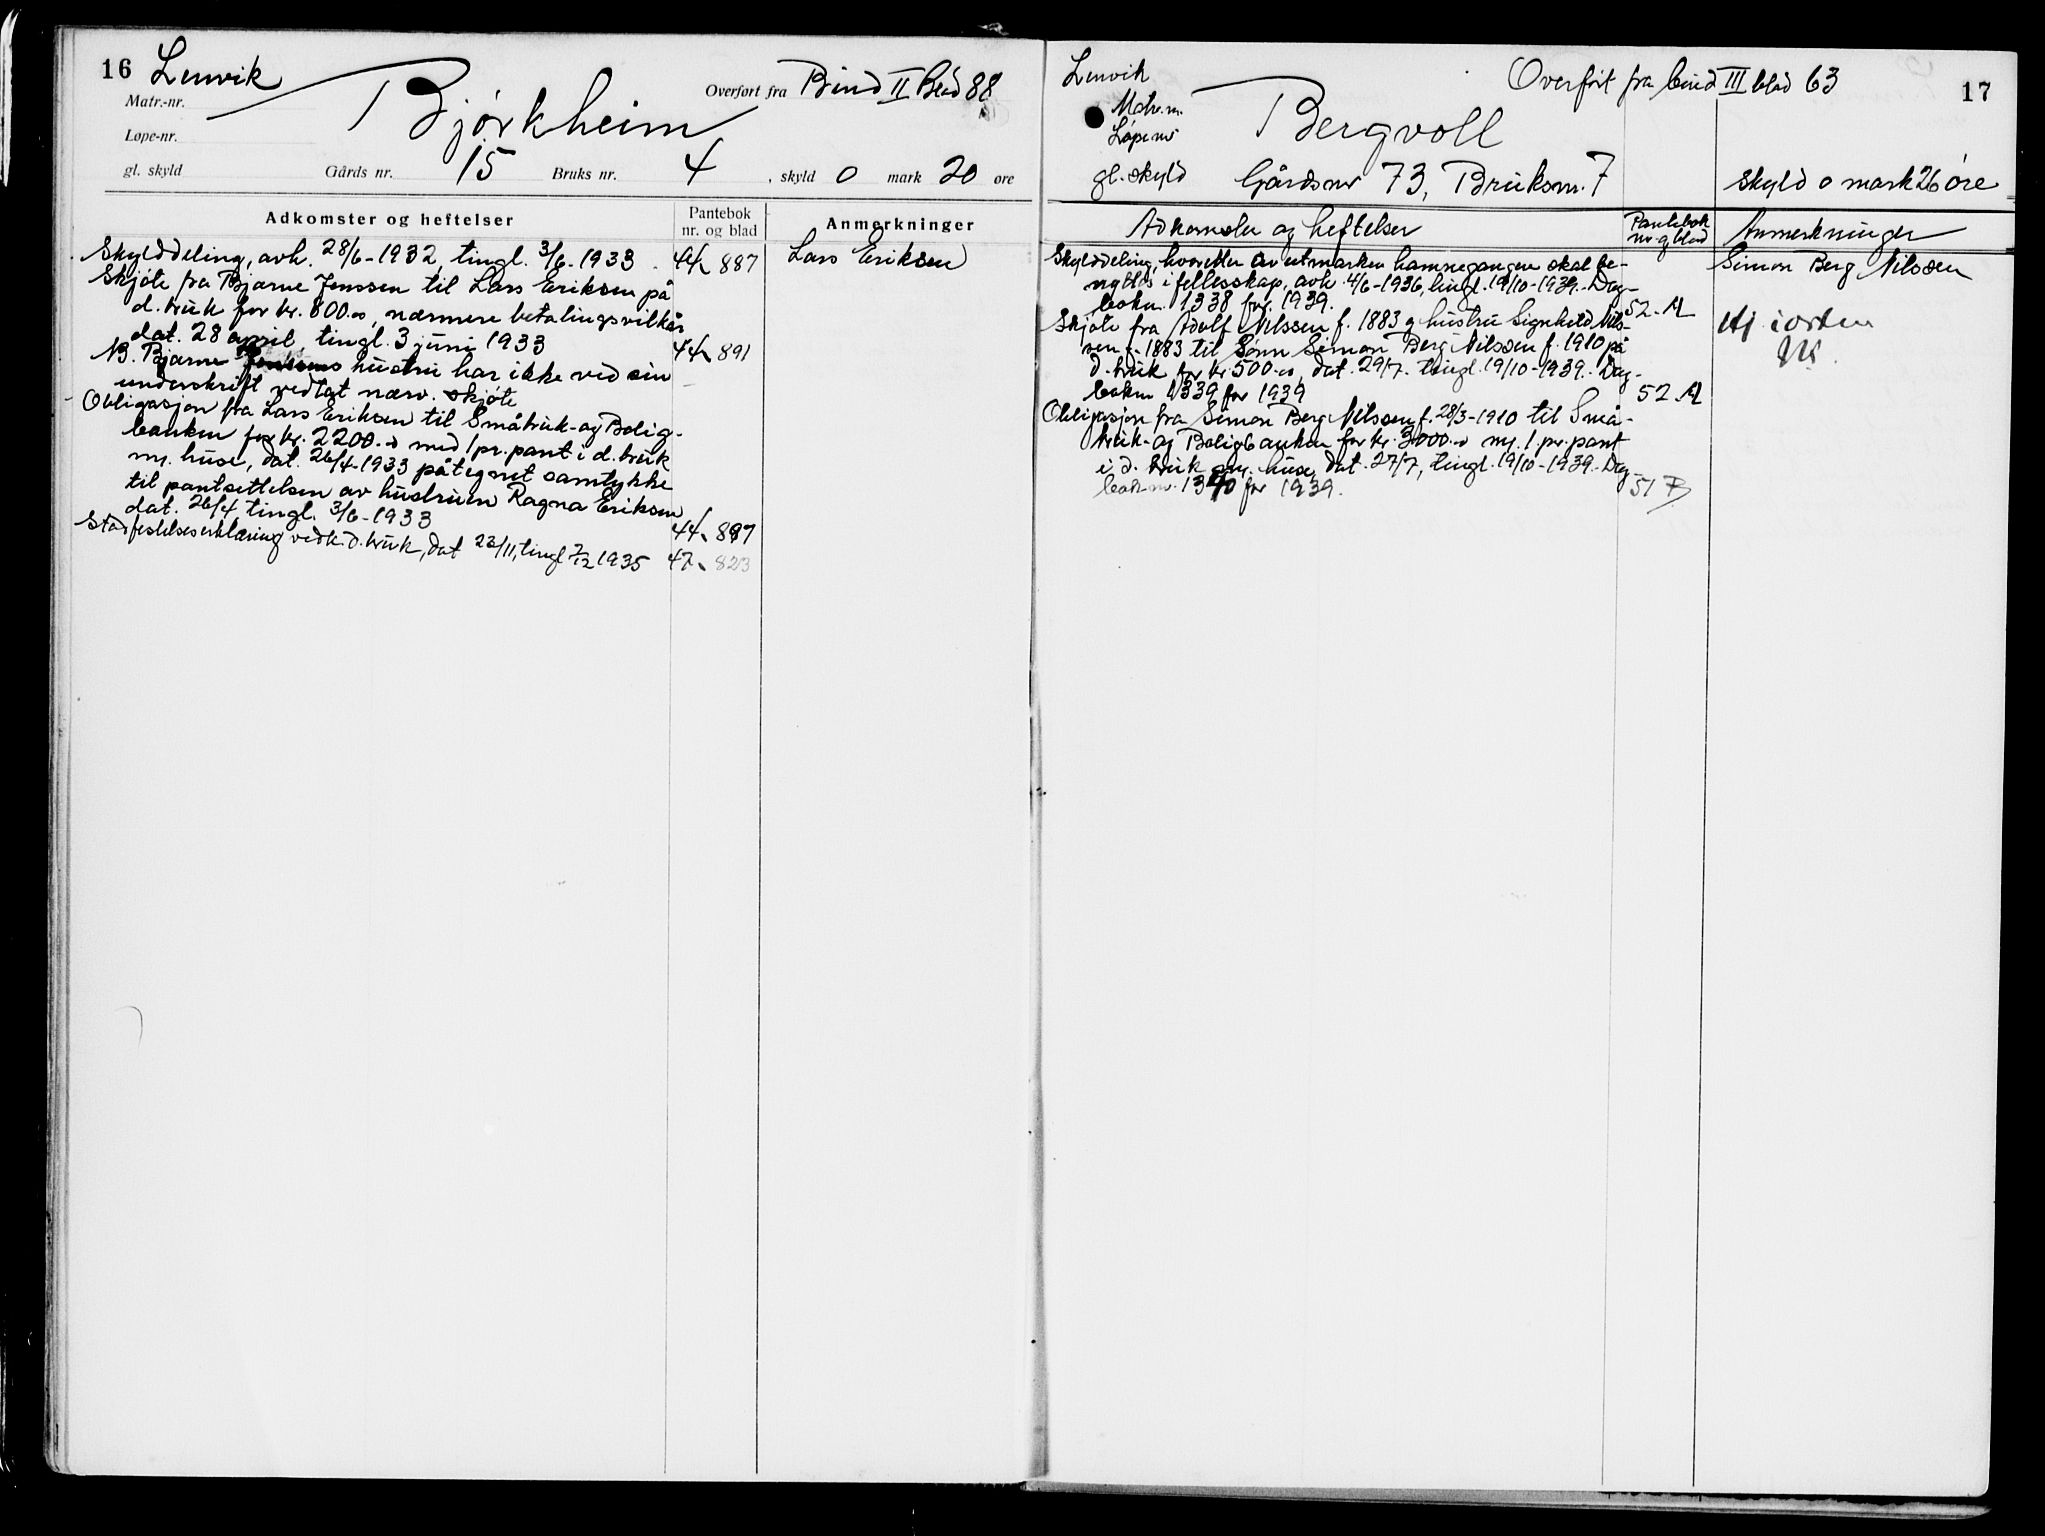 16 Lenvik
Bjørkheim
Overført fra Bind II Blad 88
Matr.-nr.
Løpe-nr.
gl. skyld Gårds nr. 15 Bruks nr. 4, skyld 0 mark 20 øre
Adkomster og heftelser
Pantebok
nr. og blad
Anmerkninger
Skylddeling, avh. 28/6-1932 tingl. 3/6-1933 44 887
Lars Eriksen
Skjøte fra Bjarne Jenssen til Lars Eriksen på
d. bruk for kr. 800.00, nærmere betalingsvilkår
dat. 28 april, tingl. 3 juni 1933 44 891
NB. Bjarne Jenssens hustru har ikke ved sin
underskrift vedtat nærv. skjøte
Obligasjon fra Lars Eriksen til Småbruk- og Bolig-
banken for kr. 2200.- med 1 pr. pant i d. bruk
m. huse, dat. 26/4-1933 påtegnet samtykke
til pantsettelsen av hustruen Ragna Eriksen
dat. 26/4 tingl. 3/6-1933 44 897
Stadfestelseserklæring vedk. d. bruk, dat 23/11, tingl 7/12 1935 47 823
Lenvik
Overført fra bind III blad 63
17
Matr. nr.
Løpe nr
Bergvoll
gl. skyld Gårdsnr 73, Bruksnr. 7 skyld 0 mark 26 øre
Adkomster og heftelser
Pantebok
nr og blad
Anmerkninger
Skylddeling, hvoretter av utmarken hamnegangen skal be-
Simon Berg Nilssen
nyttes i fellesskap, avh. 4/6-1936, tingl. 19/10-1939. Dag-
bokn. 1338 for 1939. 52-A
Skjøte fra Adolf Nilssen f. 1883 og hustru Signhild Nils-
sen f. 1883 til Sønn Simon Berg Nilssen f. 1910 på
d. bruk for kr 500.00, dat. 29/7. tingl. 19/10-1939. Dag-
bokn 1339 for 1939 52 A
Hj. i orden
Obligasjon fra Simon Berg Nilssen f. 28/3-1910 til Små-
bruk- og Boligbanken for kr. 3000.- m. 1. pr. pant
i d. bruk m. huse, dat. 27/7, tingl. 19/10-1939. Dag-
bok nr. 1340 for 1939. 51 B